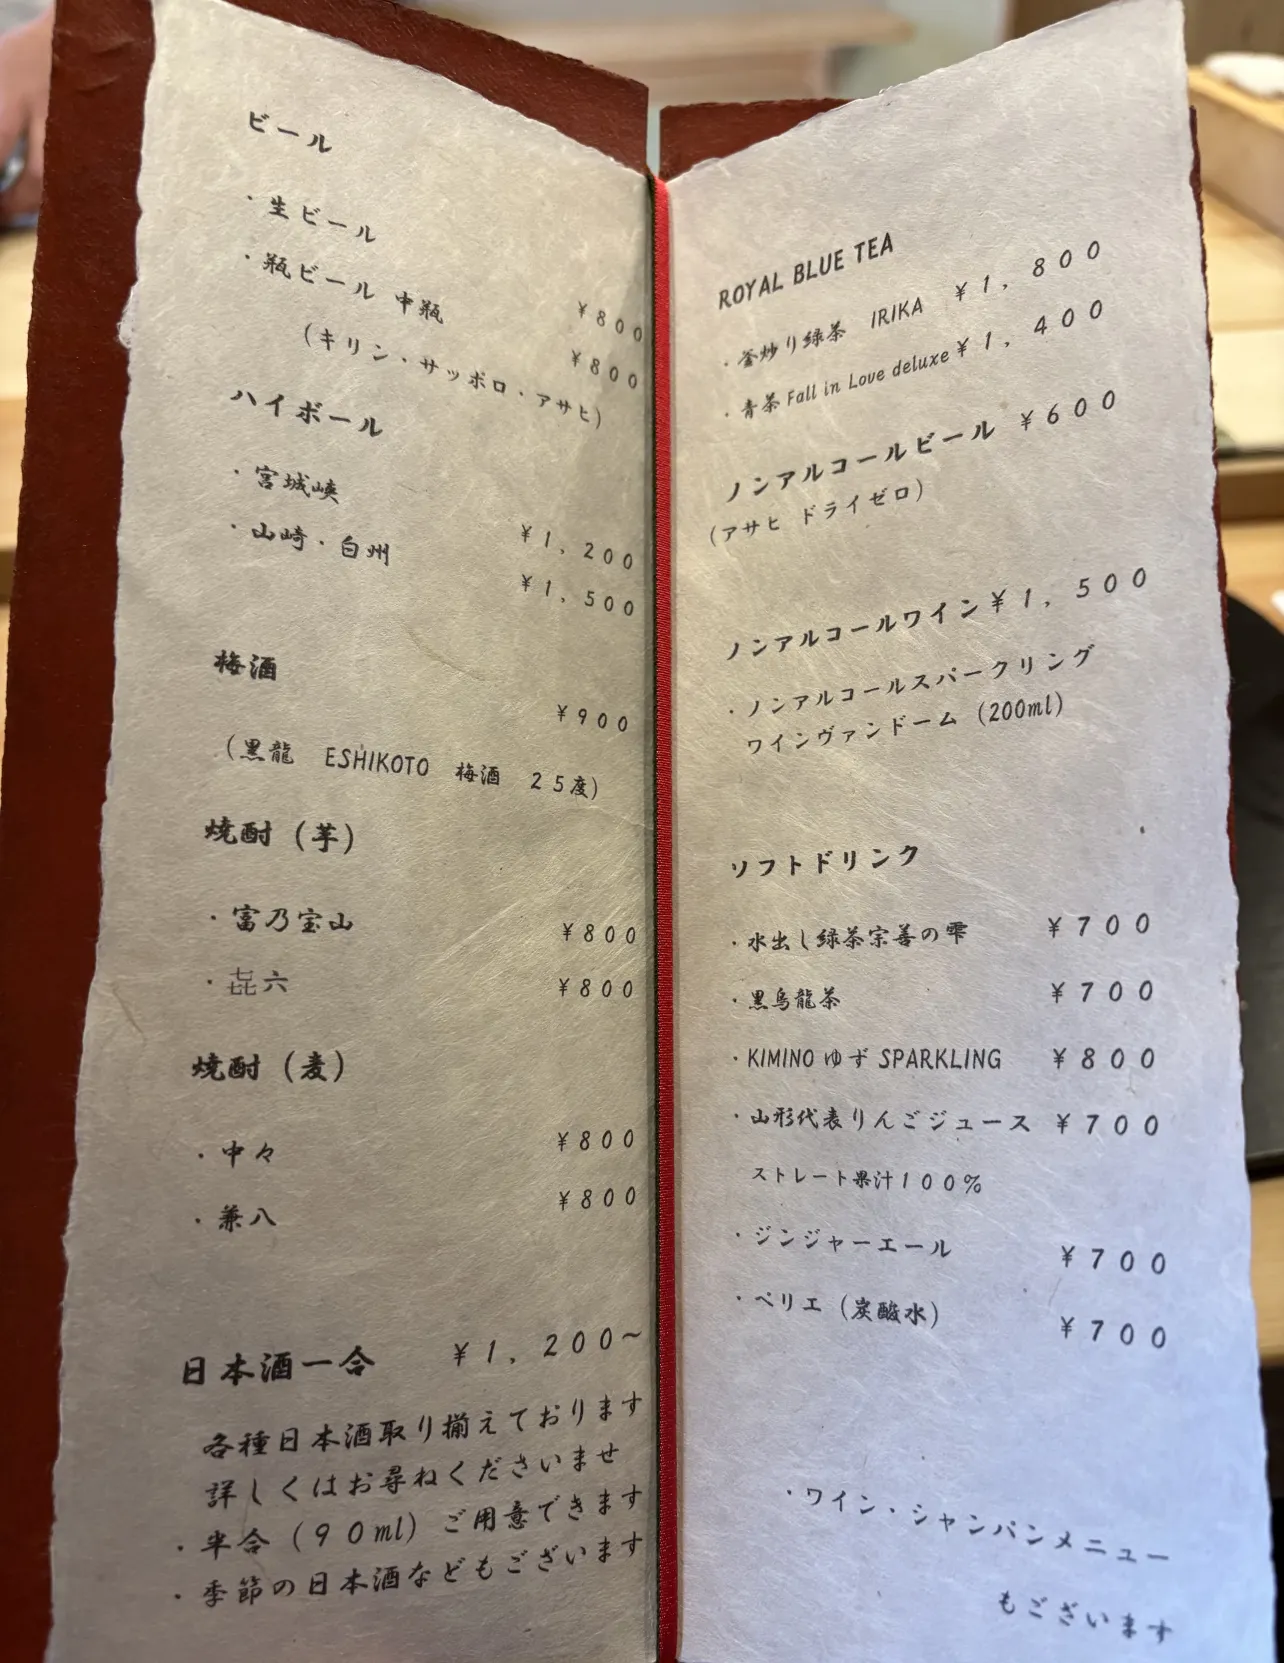 ビール
・生ビール ¥800
・瓶ビール 中瓶 ¥800
(キリン・サッポロ・アサヒ)
ハイボール
・宮城峡 ¥1,200
・山崎・白州 ¥1,500
梅酒 ¥900
(黒龍 ESHIKOTO 梅酒 25度)
焼酎(芋)
・富乃宝山 ¥800
・㐂六 ¥800
焼酎(麦)
・中々 ¥800
・兼八 ¥800
日本酒一合 ¥1,200~
各種日本酒取り揃えております
詳しくはお尋ねくださいませ
・半合(90ml)ご用意できます
・季節の日本酒などもございます
ROYAL BLUE TEA
・釜炒り緑茶 IRIKA ¥1,800
・青茶 Fall in Love deluxe ¥1,400
ノンアルコールビール ¥600
(アサヒ ドライゼロ)
ノンアルコールワイン ¥1,500
・ノンアルコールスパークリング
ワインヴァンドーム (200ml)
ソフトドリンク
・水出し緑茶宗善の雫 ¥700
・黒烏龍茶 ¥700
・KIMINO ゆず SPARKLING ¥800
・山形代表りんごジュース ¥700
ストレート果汁100%
・ジンジャーエール ¥700
・ペリエ(炭酸水) ¥700
・ワイン・シャンパンメニュー
もございます